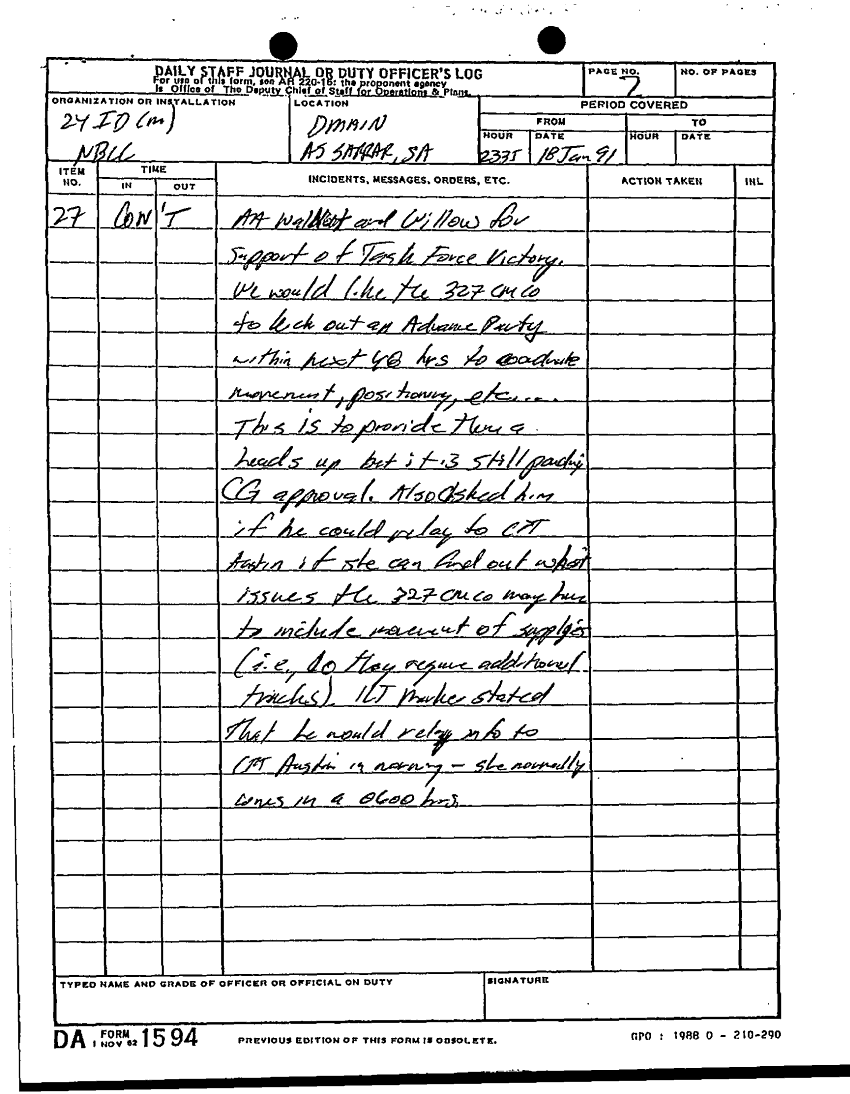 DAILY STAFF JOURNAL OR DUTY OFFICER'S LOG
For use of this form, see AR 220-15; the proponent agency
is Office of The Deputy Chief of Staff for Operations & Plans.
PAGE NO.
7
NO. OF PAGES
ORGANIZATION OR INSTALLATION
24 ID (M)
NBCC
LOCATION
DMAIN
AS SARRAR, SA
PERIOD COVERED
FROM
TO
HOUR
DATE
HOUR
DATE
2335
18 Jan 91
ITEM NO.
TIME
IN
OUT
INCIDENTS, MESSAGES, ORDERS, ETC.
ACTION TAKEN
INL
27 CON'T AA Walnut and Willow for
support of Task Force Victory.
We would like the 327 CM CO
to kick out an Advance Party
within next 48 hrs to coordinate
movement, positioning, etc....
This is to provide them a
heads up but it is still pending
CG approval. Also asked him
if he could relay to CPT
Austin if she can find out what
issues the 327 CM CO may have
to include movement of supplies
(i.e., do they require additional
trucks). 1LT stated
That he would relay info to
CPT Austin in morning - she normally
comes in a 0600 hrs
TYPED NAME AND GRADE OF OFFICER OR OFFICIAL ON DUTY
SIGNATURE
DA FORM 1 NOV 62 1594
PREVIOUS EDITION OF THIS FORM IS OBSOLETE.
GPO : 1988 O - 210-290